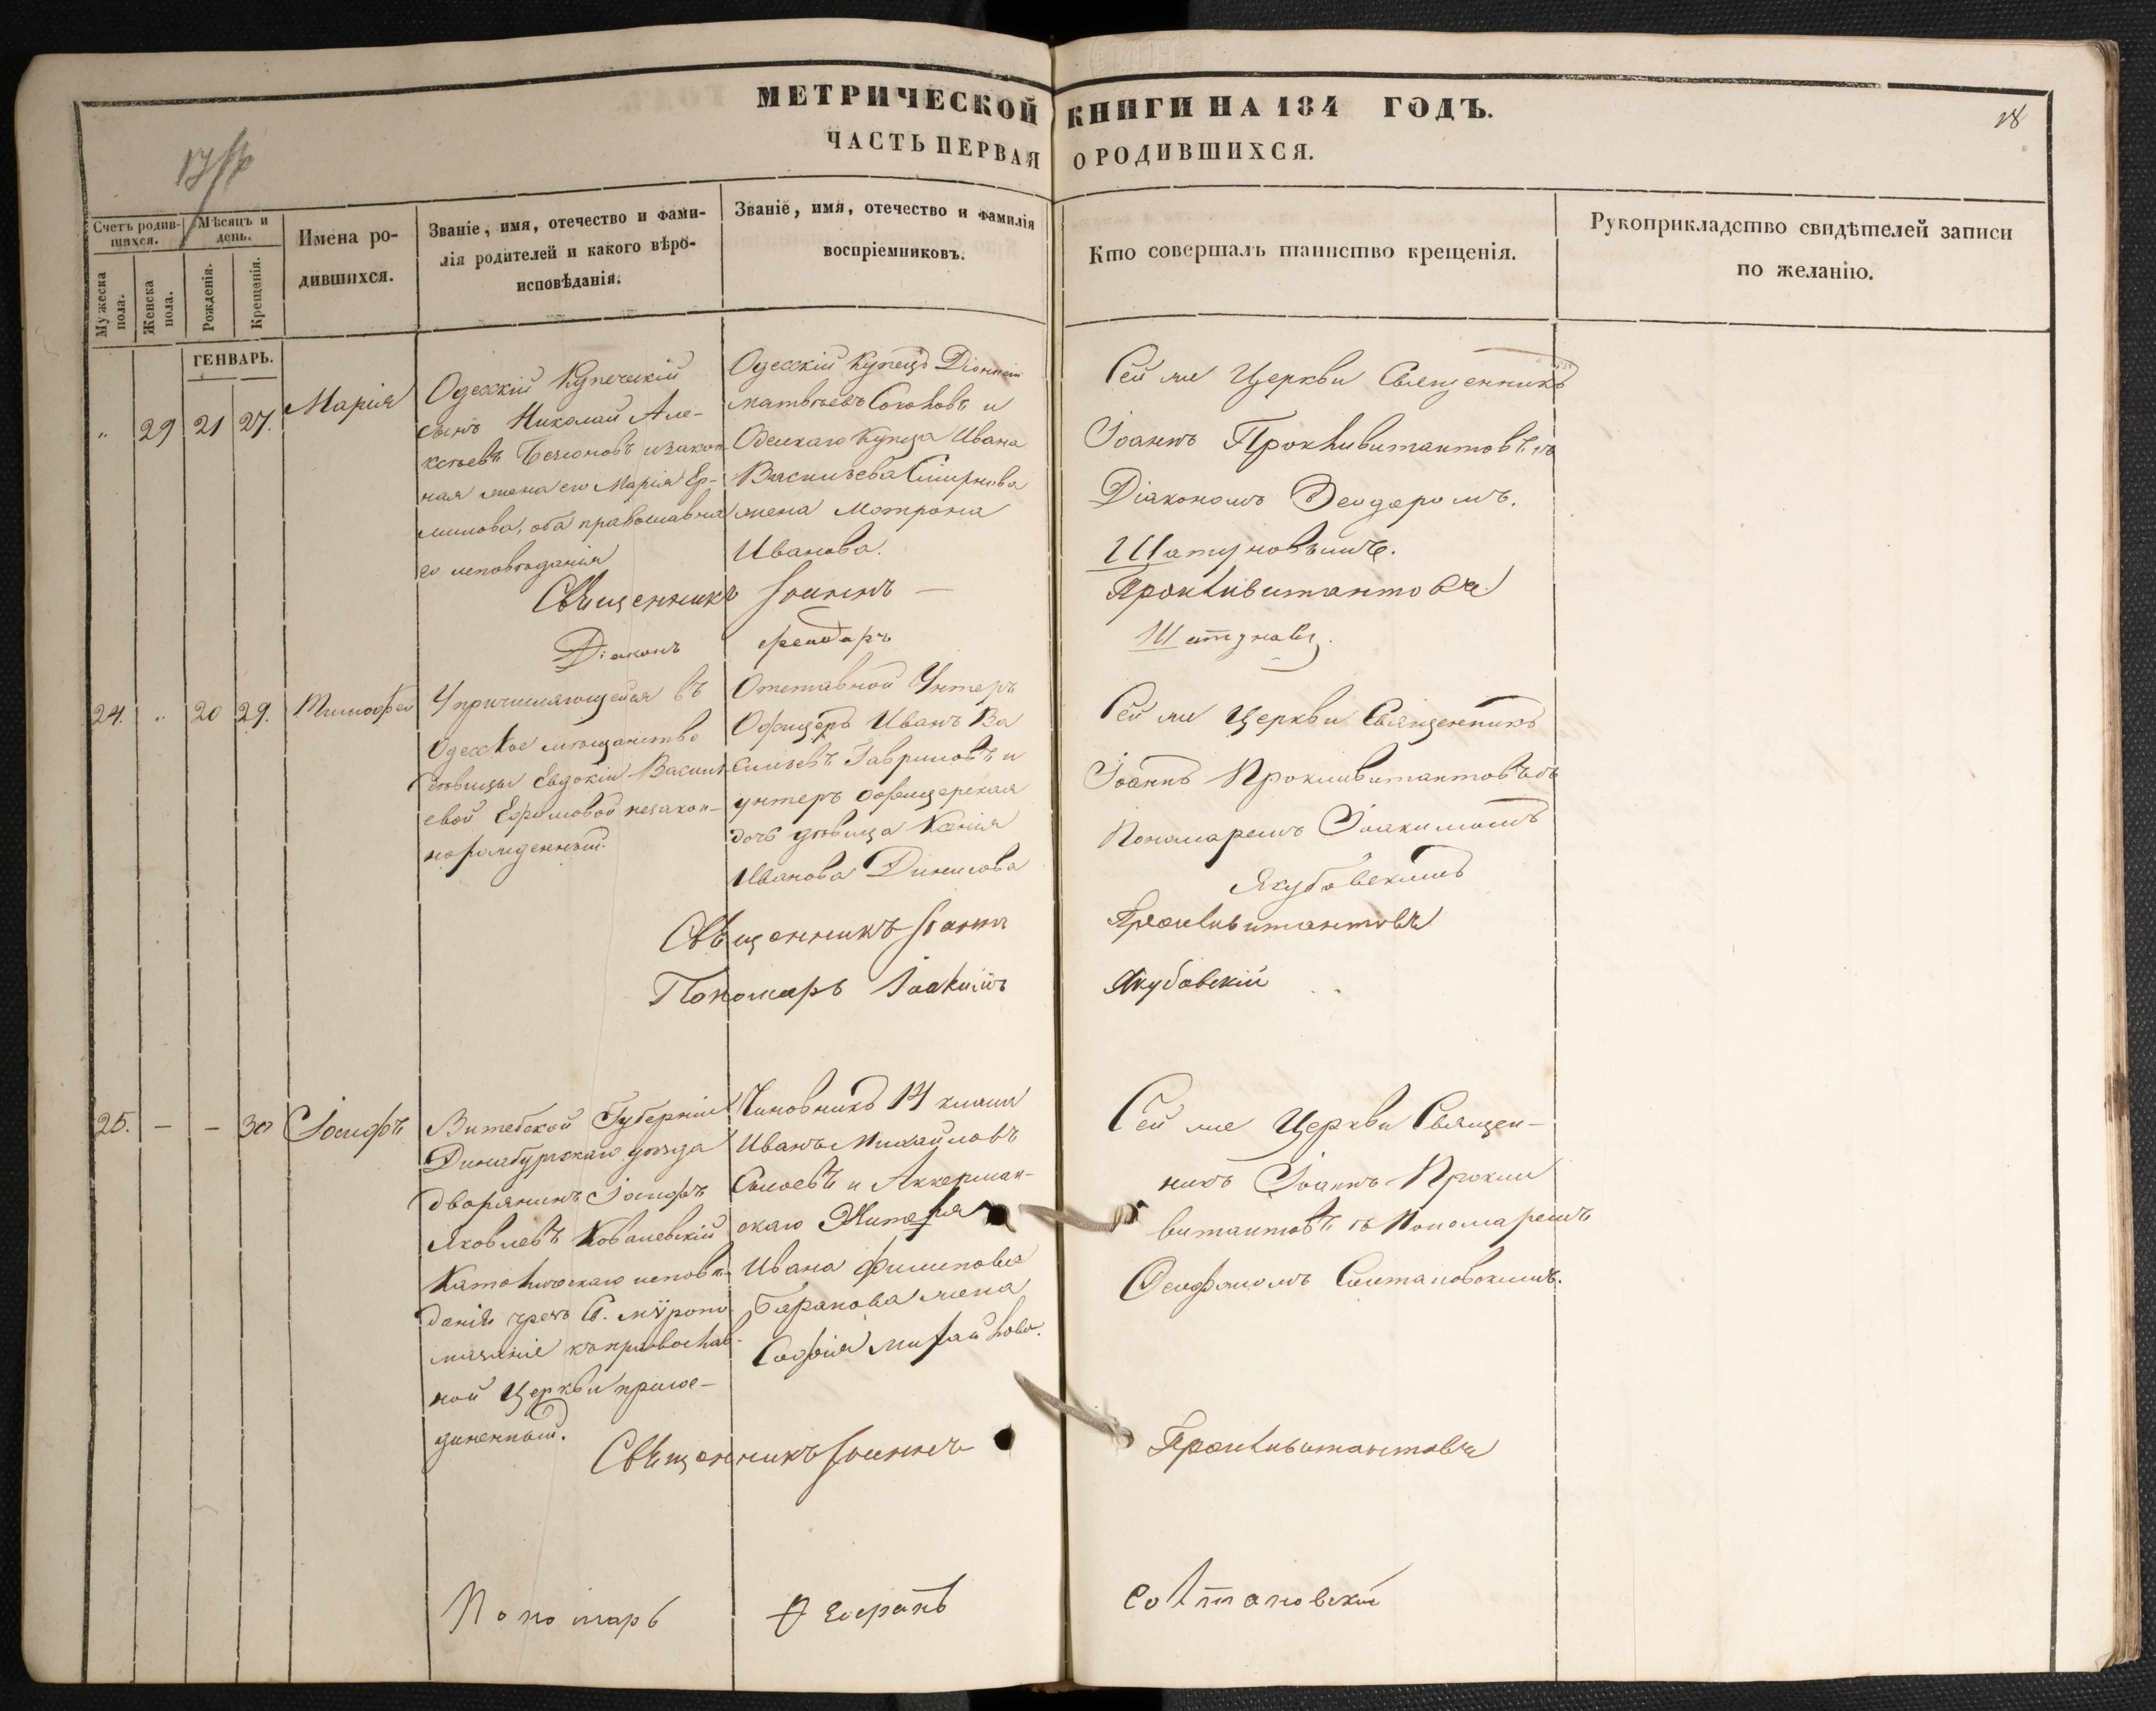 МЕТРИЧЕСКОЙ КНИГИ НА 184 ГОДЪ.
ЧАСТЬ ПЕРВАЯ О РОДИВШИХСЯ.
18
Счетъ родив-
шихся.
Мужеска пола.
Женска пола.
Мѣсяцъ и
день.
Рожденія.
Крещенія.
Имена ро-
дившихся.
Званіе, имя, отечество и фами-
лія родителей и какого вѣро-
исповѣданія.
Званіе, имя, отечество и фамилія
воспріемниковъ.
Кто совершалъ таинство крещенія.
Рукоприкладство свидѣтелей записи
по желанію.
ГЕНВАРЬ.
" 29 21 27.
Марія
Одесскій Купеческій
сынъ Николай Але-
ксѣевъ и закон-
ная жена его Марія Ер-
милова, оба православна
го исповѣданія
Одесскій Купецъ Діонисій
Матвѣевъ Соколовъ и
Одескаго Купца Ивана
Васильева Смирнова
жена Матрона
Иванова.
Сей же Церкви Священникъ
Іоаннъ Прокливитантовъ съ
Діакономъ Ѳеодоромъ.
Шатуновымъ.
Священникъ Іоаннъ — Прокливитантовъ
Діаконъ Феодоръ Шатуновъ.
24. " 20 29.
Тимофей
У причисляющейся въ
Одесское мѣщанство
дѣвицы Евдокіи Василь-
евой Ефимовой незакон-
норожденный.
Отставной Унтеръ
Офицеръ Иванъ Ва
сильевъ Гавриловъ и
унтеръ офицерская
дочь дѣвица Ксенія
Иванова Динисова
Сей же Церкви Священникъ
Іоаннъ Прокливитантовъ съ
Пономаремъ Іоакимомъ
Якубовскимъ
Священникъ Іоаннъ Прокливитантовъ
Пономарь Іоакимъ Якубовскій
25. — — 30
Іосифъ
Витебской Губерніи
Динабургскаго уѣзда
дворянинъ Іосифъ
Яковлевъ Ковалевскій
Католическаго исповѣ-
данія чрезъ Св. мѵропо
мазаніе къ православ-
ной Церкви присое-
диненный.
Чиновникъ 14 класа
Иванъ Михайловъ
Сысоевъ и Аккерман-
скаго Жителя
Ивана Филипова
Баранова жена
Софія Михайлова.
Сей же Церкви Священ-
никъ Іоаннъ Прокли
витантовъ съ Пономаремъ
Ѳеофаномъ Солтановскимъ.
Священникъ Іоаннъ Прокливитантовъ
Пономарь Ѳеофанъ Солтановскій